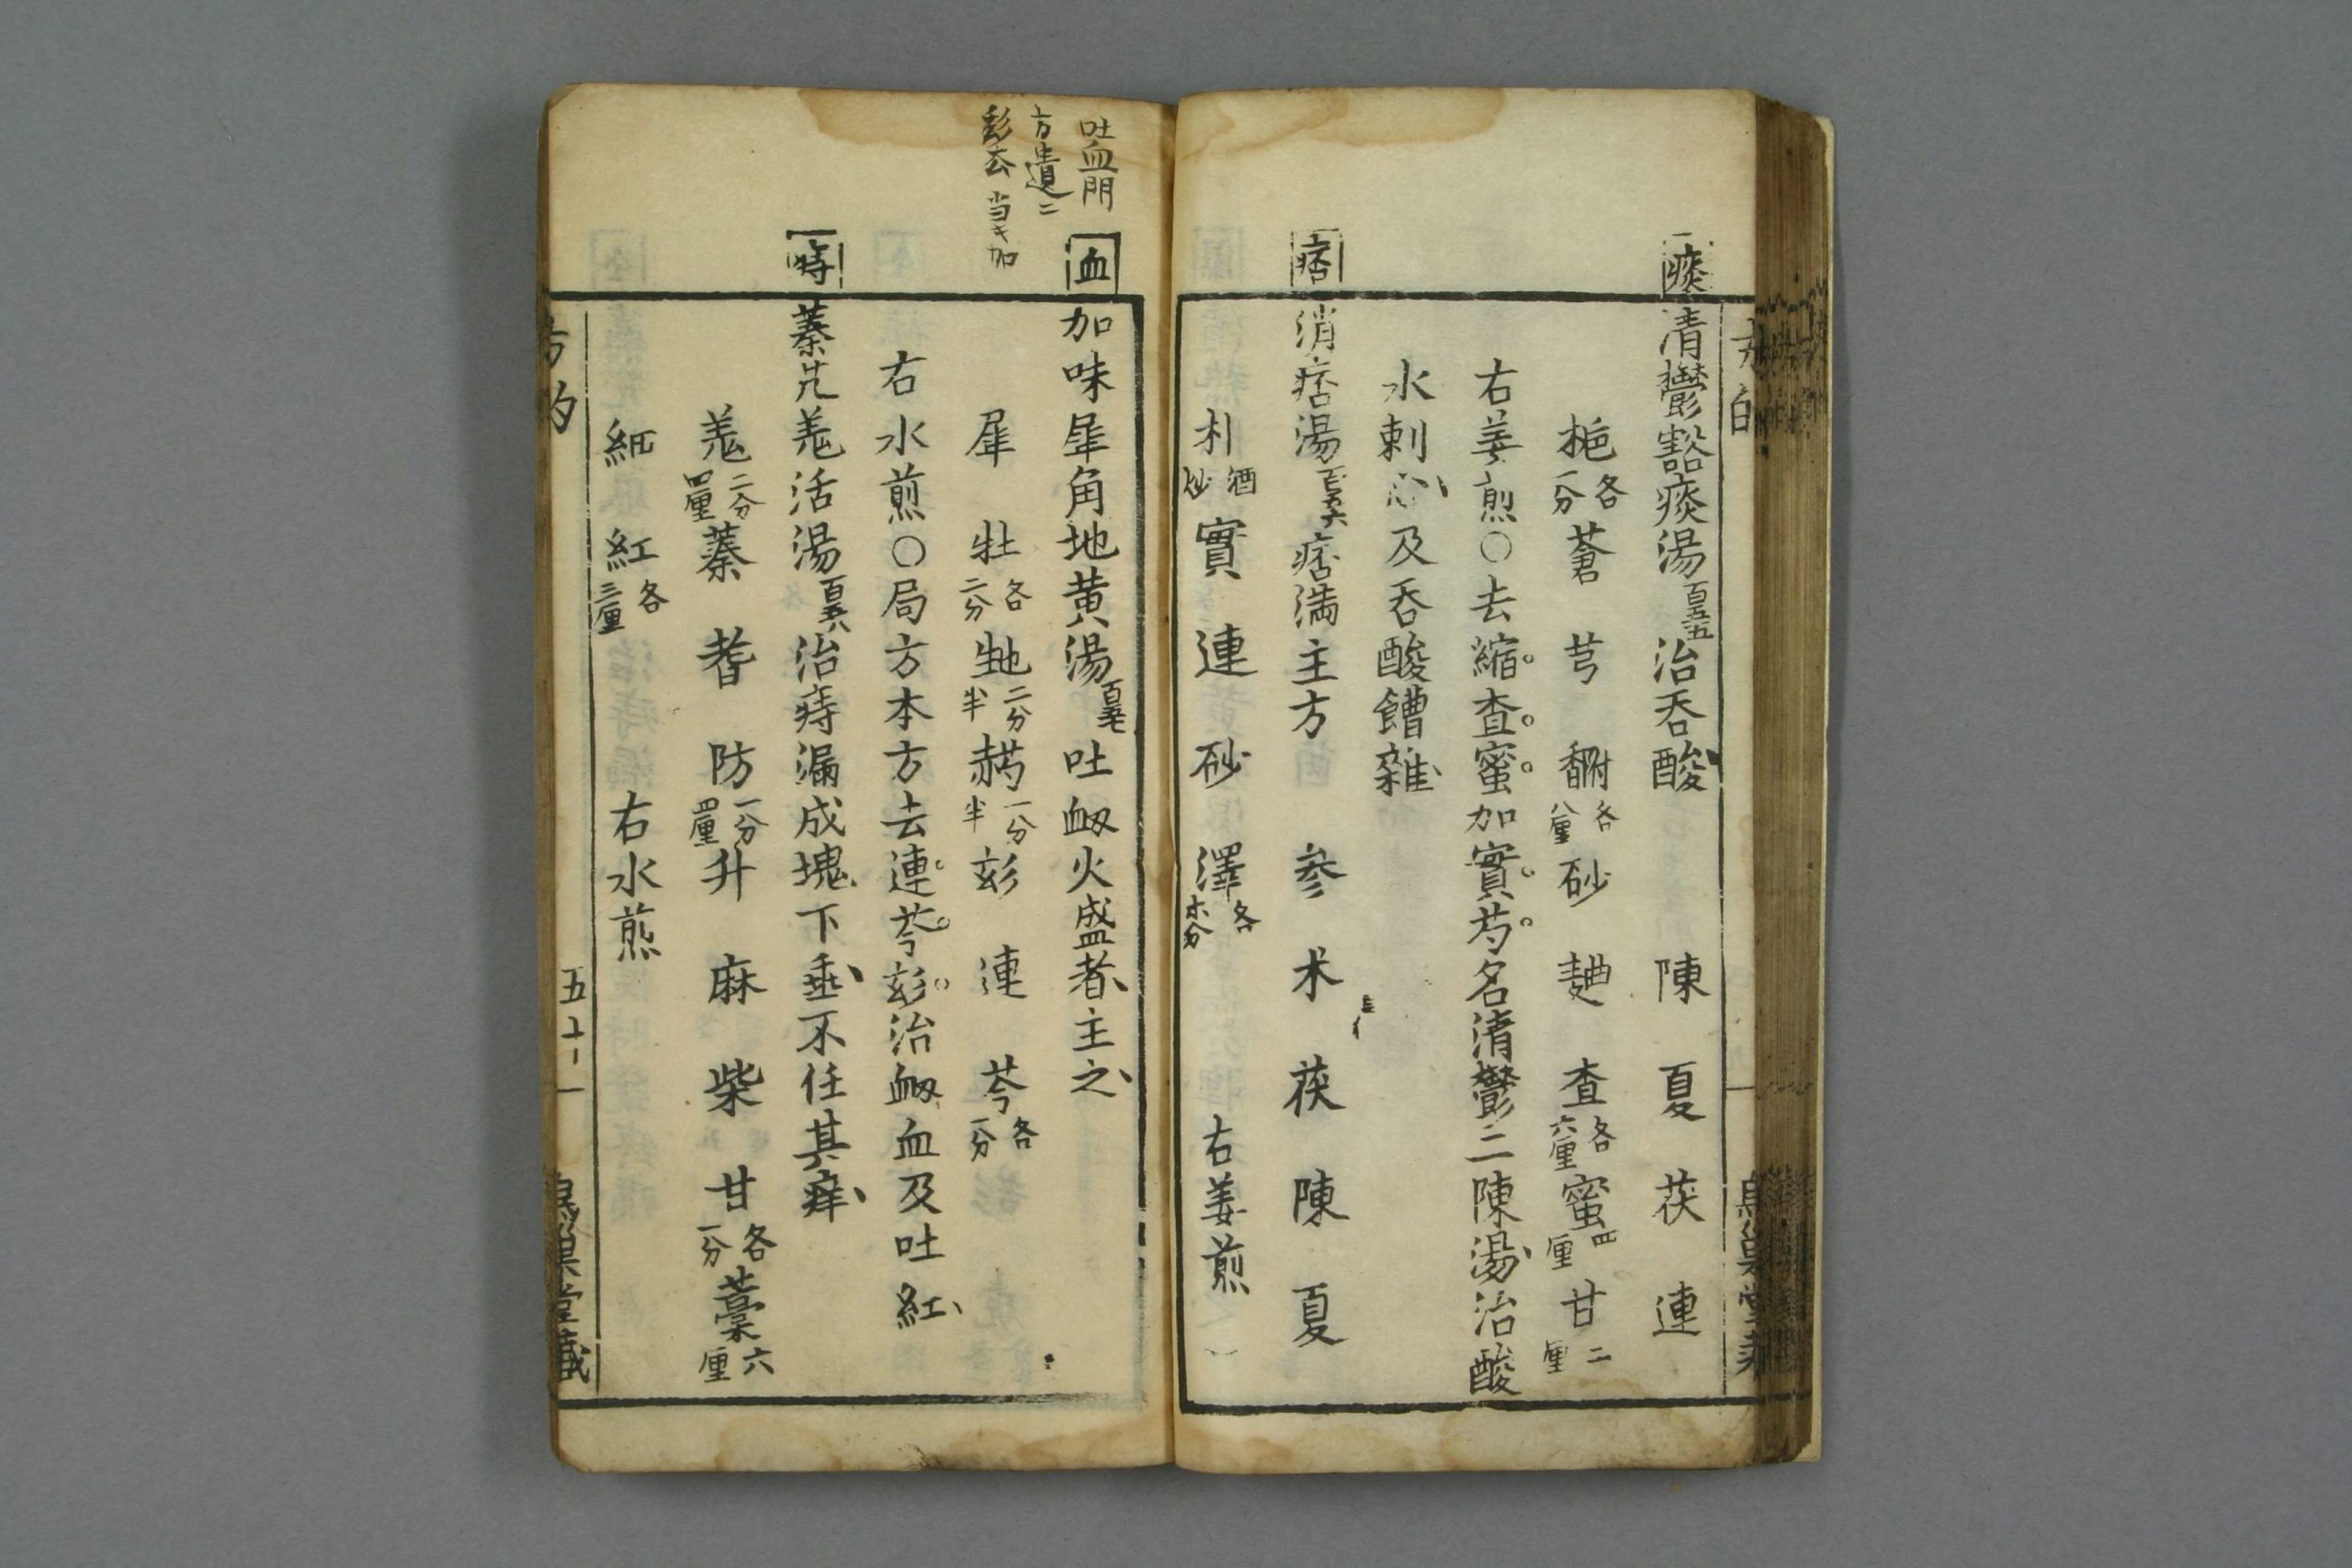 痰
清鬱豁痰湯百五十五治呑酸 陳 夏 茯 連
梔各一分 蒼 芎 各八厘 砂 査各六厘 蜜四厘 甘二厘
右姜煎〇去縮査蜜加實芍名清鬱二陳湯治酸
水刺心及呑酸饐雜
痞
消痞湯百五十六 痞満主方 参 木 茯 陳 夏
朴酒炒 實 連 砂 澤各 右姜煎
吐血門
方遺ニ
彭去 当キ加
血
加味犀角地黄湯百五十七 吐衂火盛者主之
犀 牡各二分 二分半 一分半 連 芩各一分
右水煎〇局方本方去連芩 治衂血及吐紅
痔
蓁艽羗活湯百五十八 治痔漏成塊下垂不任其痒
羗二分四厘 蓁 耆 防一分四厘 升 麻 柴 甘各一分 藁六厘
細 紅各三厘 右水煎
五十一
烏巣堂藏